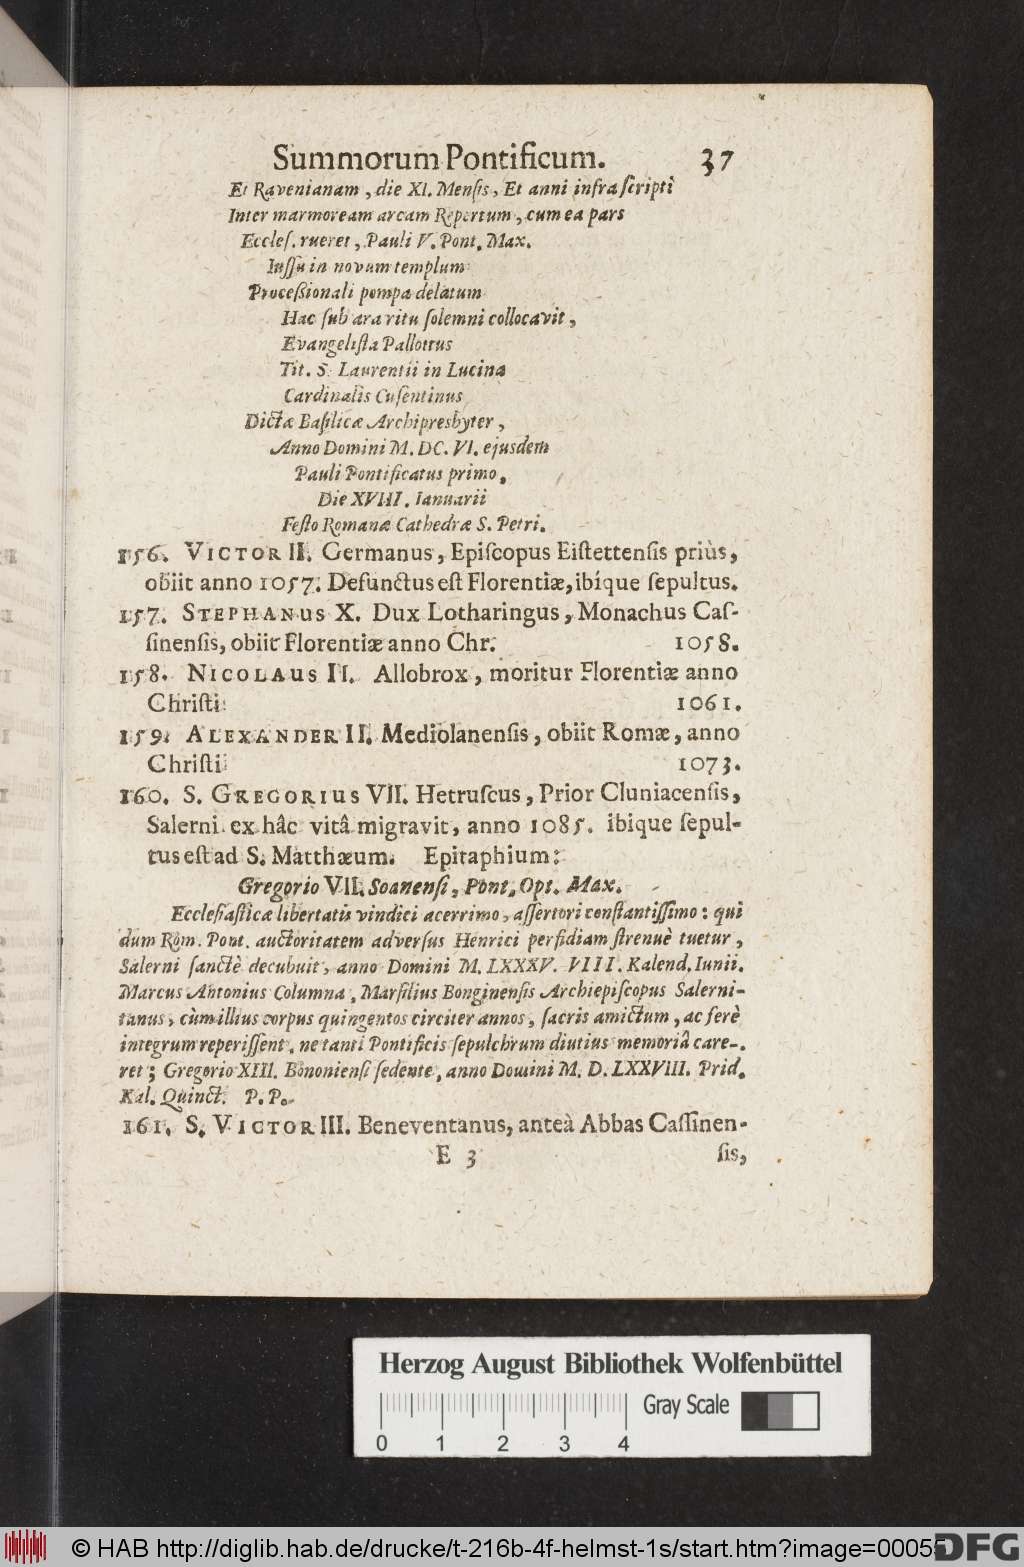 Summorum Pontificum. 37
Et Ravenianam, die XI. Mensis, Et anni infra scripti
Inter marmoream arcam Repertum, cum ea pars
Eccles. rueret, Pauli V. Pont. Max.
Iussu in novum templum
Proceßionali pompa delatum
Hac sub ara ritu solemni collocavit,
Evangelista Pallottus
Tit. S. Laurentii in Lucina
Cardinalis Cusentinus
Dictæ Basilicæ Archipresbyter,
Anno Domini M. DC. VI. ejusdem
Pauli Pontificatus primo.
Die XVIII. Ianuarii
Festo Romanæ Cathedræ S. Petri.
156. VICTOR II. Germanus, Episcopus Eistettensis priùs,
obiit anno 1057. Defunctus est Florentiæ, ibíque sepultus.
157. STEPHANUS X. Dux Lotharingus, Monachus Cas-
sinensis, obiit Florentiæ anno Chr. 1058.
158. NICOLAUS II. Allobrox, moritur Florentiæ anno
Christi 1061.
159. ALEXANDER II. Mediolanensis, obiit Romæ, anno
Christi 1073.
160. S. GREGORIUS VII. Hetruscus, Prior Cluniacensis,
Salerni ex hâc vitâ migravit, anno 1085. ibique sepul-
tus est ad S. Matthæum. Epitaphium:
Gregorio VII. Soanensi, Pont. Opt. Max.
Ecclesiasticæ libertatis vindici acerrimo, assertori constantissimo: qui
dum Rom. Pont. auctoritatem adversus Henrici perfidiam strenuè tuetur,
Salerni sanctè decubuit, anno Domini M. LXXXV. VIII. Kalend. Iunii.
Marcus Antonius Columna, Marsilius Bonginensis Archiepiscopus Salerni-
tanus, cùm illius corpus quingentos circiter annos, sacris amictum, ac ferè
integrum reperissent, ne tanti Pontificis sepulchrum diutius memoriâ care-
ret; Gregorio XIII. Bononiensi sedente, anno Domini M. D. LXXVIII. Prid.
Kal. Quinct. P. P.
161. S. VICTOR III. Beneventanus, anteà Abbas Cassinen-
E 3 sis,
Herzog August Bibliothek Wolfenbüttel
Gray Scale
0 1 2 3 4
© HAB http://diglib.hab.de/drucke/t-216b-4f-helmst-1s/start.htm?image=00055
DFG